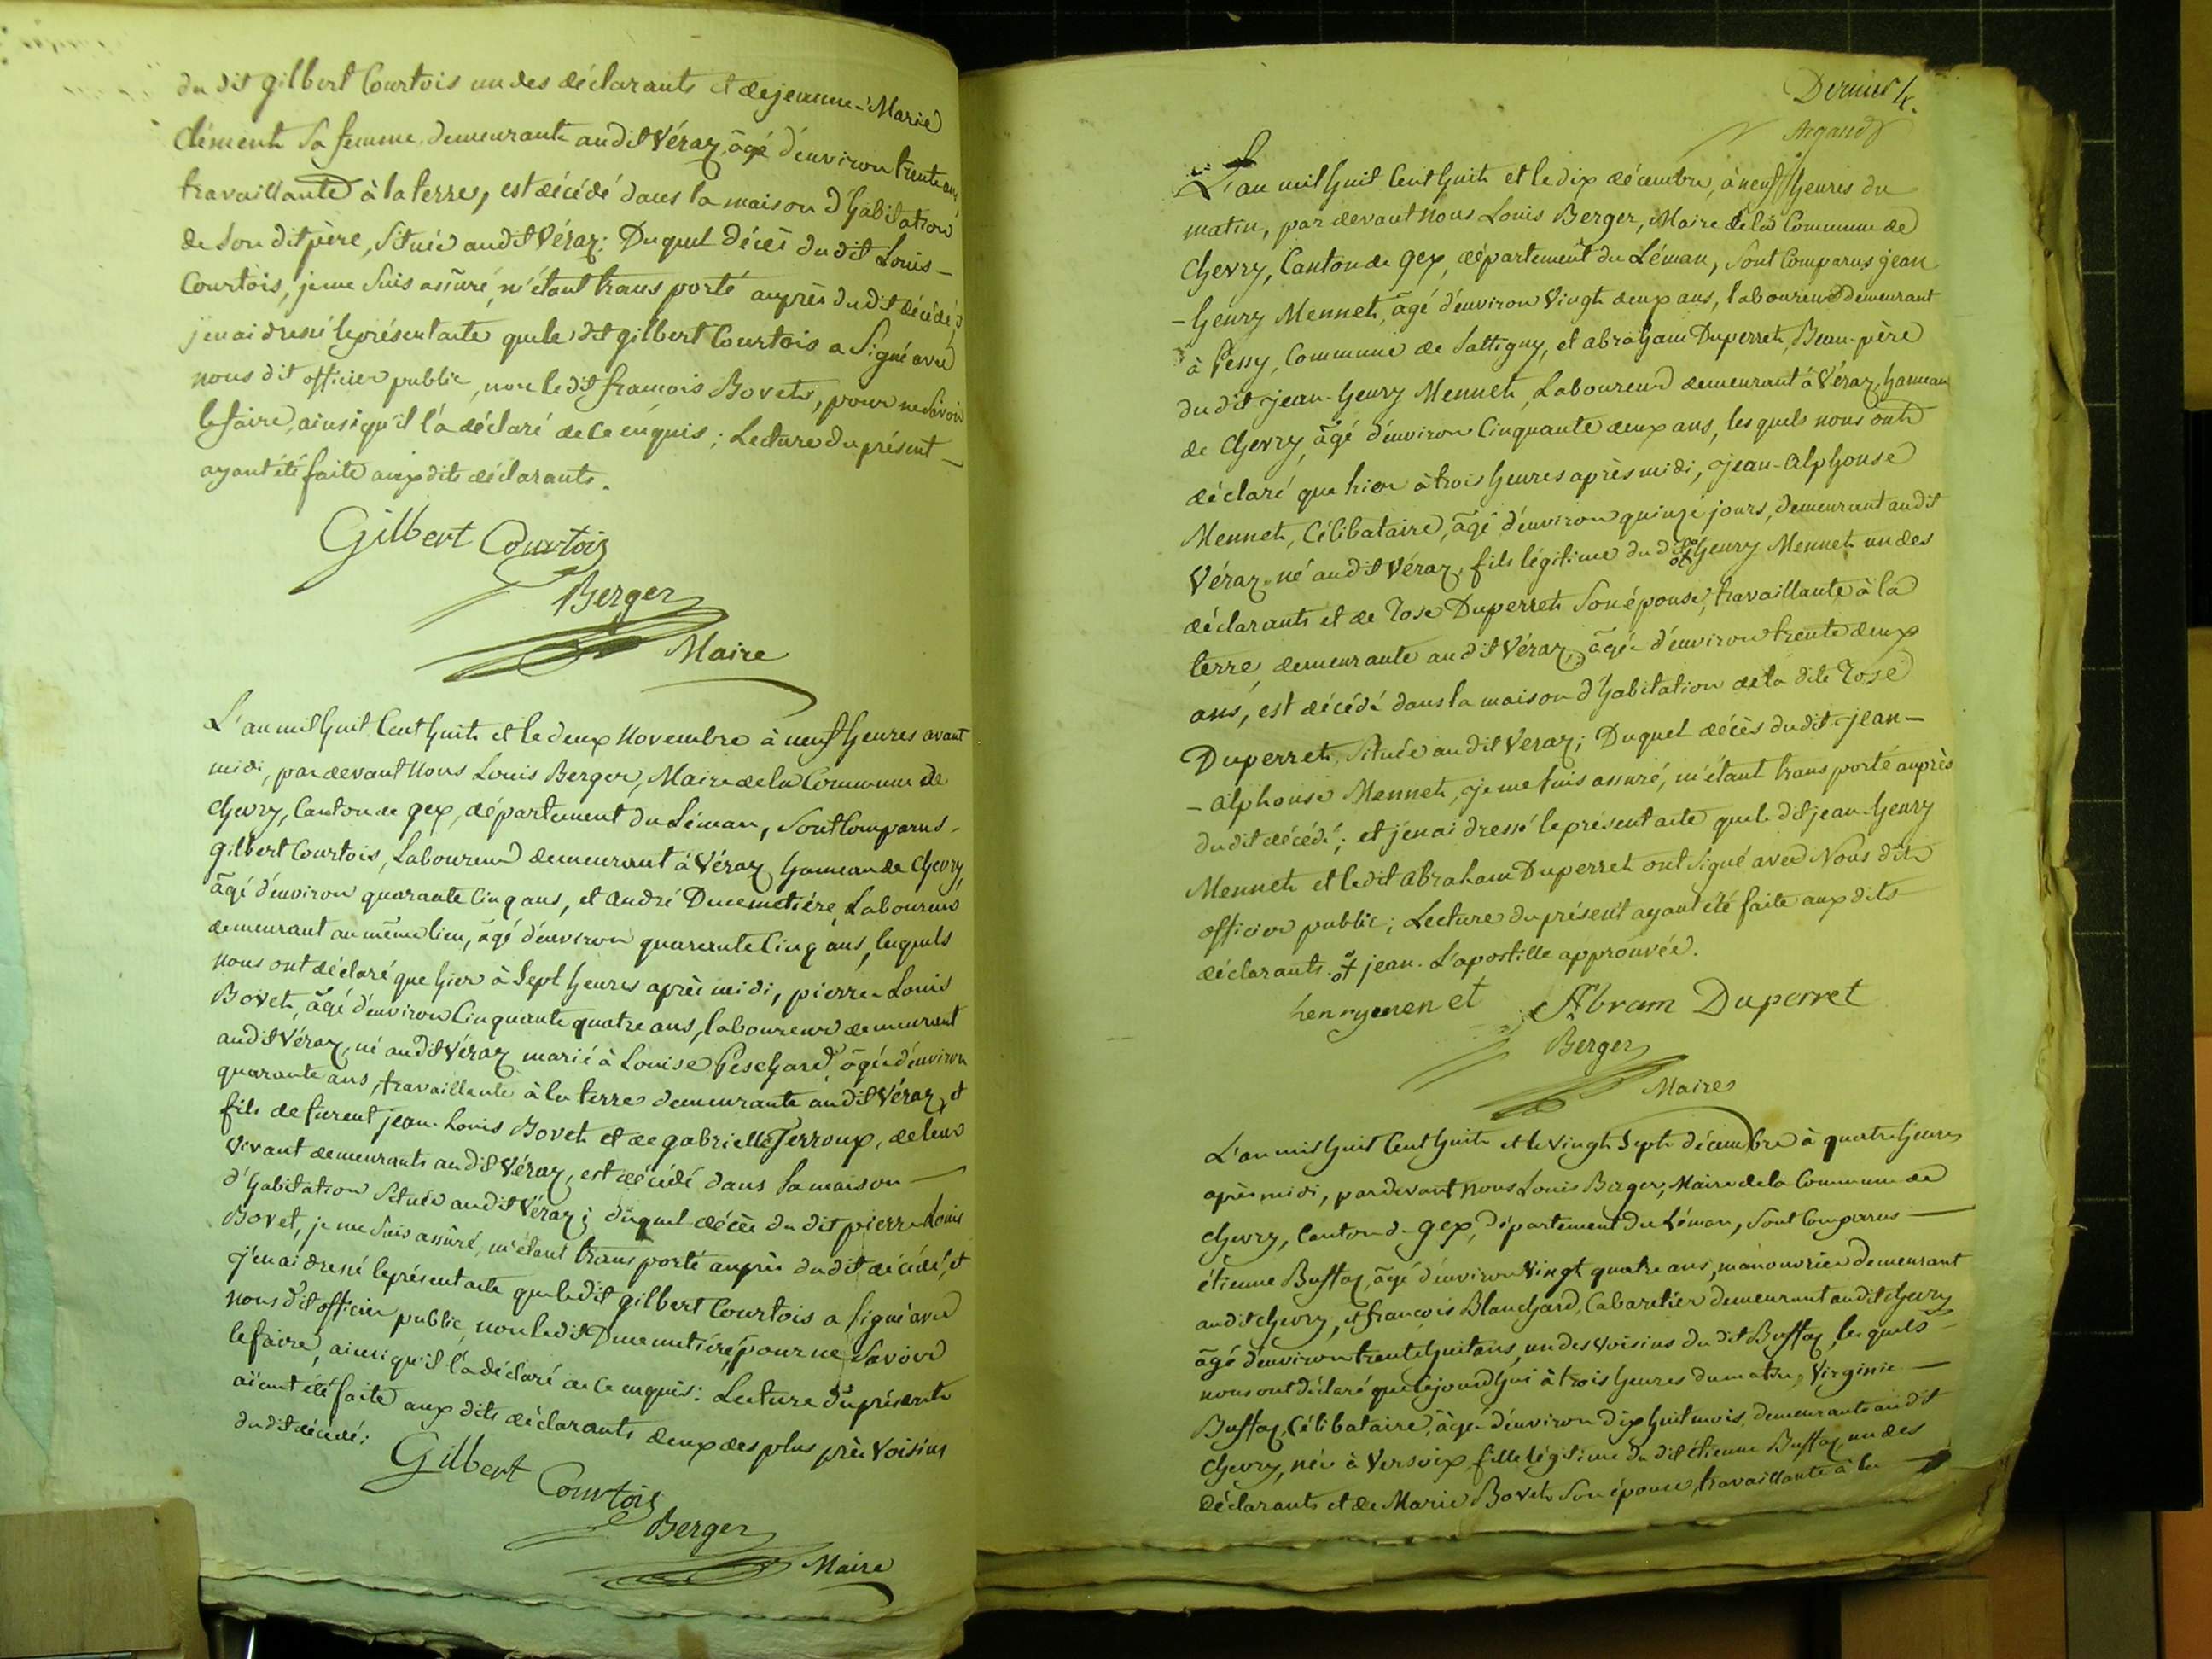 du dit gilbert Courtois un des déclarants et de jeanne-Marie
Clément sa femme, demeurante audit Véraz, âgé d'environ trente ans
travaillante à la terre, est décédé dans la maison d'habitation
de son dit père, située audit Véraz: Duquel décès dudit Louis-
Courtois, je me suis assuré, m'étant transporté auprès du dit décédé,
j'en ai dressé le présent acte que le dit gilbert Courtois a signé avec
nous dit officier public, non le dit françois Bovet, pour ne savoir
le faire, ainsi qu'il l'a déclaré de ce enquis; Lecture du présent -
ayant été faite aux dits déclarants.
Gilbert Courtois
Berger
Maire
L'an mil huit Cent huit et le deux Novembre à neuf heures avant
midi, par devant Nous Louis Berger, Maire de la Commune de
Chevry, Canton de gex, département du Léman, sont Comparus,
gilbert Courtois, Laboureur demeurant à Véraz hameau de Chevry,
âgé d'environ quarante Cinq ans, et André Ducemetiére Laboureur
demeurant au même lieu, âgé d'environ quarante Cinq ans, lesquels
nous ont déclaré que hier à Sept heures après midi, pierre Louis
Bovet, âgé d'environ Cinquante quatre ans, laboureur demeurant
audit Véraz, né audit Véraz marié à Louise Peschard âgée d'environ
quarante ans, travaillante à la terre demeurante audit Véraz, et
fils de furent jean-Louis Bovet et de gabrielle Perroux, de leur
vivant demeurants audit Véraz, est décédé dans sa maison -
d'habitation située audit Véraz; duquel décès du dit pierre Louis
Bovet, je me suis assuré, m'étant transporté auprès dudit décédé, et
j'en ai dressé le présent acte que le dit gilbert Courtois a signé avec
nous dit officier public, non le dit Ducemetiére, pour ne savoir
le faire, ainsi qu'il l'a déclaré de ce enquis: Lecture du présent
aiant été faite aux dits déclarants deux des plus près voisins
dudit décédé;
Gilbert Courtois
Berger
Maire
Dernier 4.
Argand
L'an mil huit Cent huit et le dix décembre, à neuf heures du
matin, par devant Nous Louis Berger, Maire de la Commune de
Chevry, Canton de gex, département du Léman, sont Comparus jean
-henry Mennet, âgé d'environ vingt deux ans, laboureur demeurant
à Pessy, Commune de Sattigny, et abraham Duperret, Beau-père
du dit jean-henry Mennet, Laboureur demeurant à Véraz, hameau
de Chevry, âgé d'environ Cinquante deux ans, les quels nous ont
déclaré que hier à trois heures après midi, jean-alphonse
Mennet, Célibataire, âgé d'environ quinze jours, demeurant audit
Véraz, né audit Véraz, fils légitime du dit henry Mennet un des
déclarants et de Rose Duperret son épouse, travaillante à la
terre, demeurante audit Véraz, âgée d'environ trente deux
ans, est décédé dans la maison d'habitation de la dite Rose
Duperret, située audit Veraz; Duquel décès dudit jean-
-alphonse Mennet, je me suis assuré, m'étant transporté auprès
dudit décédé; et j'en ai dressé le présent acte que le dit jean-henry
Mennet et le dit abraham Duperret ont signé avec Nous dit
officier public; Lecture du présent ayant été faite aux dits
déclarants. jean. L'apostille approuvée.
henry menet Abram Duperret
Berger
Maire
L'an mil huit Cent huit et le vingt Sept décembre à quatre heures
après midi, par devant nous Louis Berger, Maire de la Commune de
Chevry, Canton de gex, département du Léman, sont Comparus -
étienne Buffaz, âgé d'environ vingt quatre ans, manouvrier demeurant
audit Chevry, et françois Blanchard, Cabaretier demeurant audit Chevry
âgé d'environ trente huit ans, un des voisins du dit Buffaz, les quels
nous ont déclaré que cejourd'hui à trois heures du matin, Virginie -
Buffaz, Célibataire, âgée d'environ dix huit mois, demeurante audit
Chevry, née à Versoix, fille légitime du dit étienne Buffaz, un des
déclarants et de Marie Bovet son épouse, travaillante à la